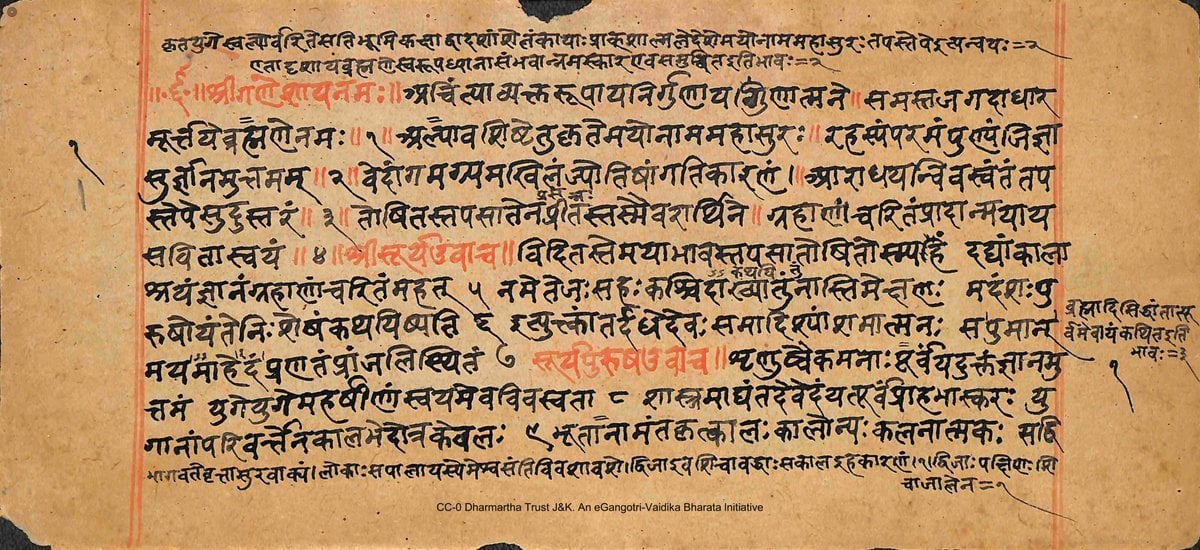 कृतयुगे स्वल्पावशिष्टे सति भूमिकक्षा द्वादशांशे लंकायाः प्राक् शाल्मले देशे मयोनाममहासुरः तपस्तेपइत्यन्वयः=२
एतादृशाय ब्रह्मणे स्वरूपध्यानासंभवान्नमस्कारएवसमुचितइतिभावः=२
॥श्रीगणेशायनमः॥ अचिंत्याव्यक्तरूपायनिर्गुणायगुणात्मने॥ समस्तजगदाधार
मूर्त्तयेब्रह्मणेनमः॥१॥ अल्पावशिष्टेतुकृतेमयोनाममहासुरः॥ रहस्यंपरमंपुण्यंजिज्ञा
सुर्ज्ञानमुत्तमम्॥२॥ वेदांगमग्र्यमखिलंज्योतिषांगतिकारणं। आराधयन्विवस्वंतंतप
स्तेपेसुदुस्तरं॥३॥ तोषितस्तपसातेनप्रीतस्तस्मैवरार्थिने॥ ग्रहाणांचरितंप्रादान्मयाय
सवितास्वयं॥४॥ श्रीसूर्यउवाच॥ विदितस्तेमयाभावस्तपसातोषितोस्म्यहं दद्यांकाला
श्रयंज्ञानंग्रहाणांचरितंमहत् ५ नमेतेजःसहःकश्चिदाख्यातुंनास्तिमेक्षणः मदंशःपु
रुषोयंतेनिःशेषंकथयिष्यति ६ इत्युक्त्कांतर्दधेदेवःसमादिश्यांशमात्मनः सपुमान्
मयमाहेदंप्रणतंप्रांजलिस्थितं ७ सूर्यपुरुषउवाच॥ शृणुष्वैकमनाःपूर्वंयदुक्तंज्ञानमु
त्तमं युगेयुगेमहर्षीणांस्वयमेवविवस्वता ८ शास्त्रमाद्यंतदेवेदंयत्पूर्वंप्राहभास्करः यु
गानांपरिवर्त्तेनकालभेदोत्रकेवलः ९ भूतानामंतकृत्कालःकालोन्यःकलनात्मकः सद्वि
भागवतेवृत्रासुरवाक्यं। लोकाःसपालायस्येमेश्वसंतिविवशावशे। द्विजाइवशिचाबद्धाःसकालइहकारणं।१।द्विजाःपक्षिणःशि
चाजालेन=१
ब्रह्मादिसिद्धांतास्तु
भावः=३
१
१
CC-0 Dharmartha Trust J&K. An eGangotri-Vaidika Bharata Initiative